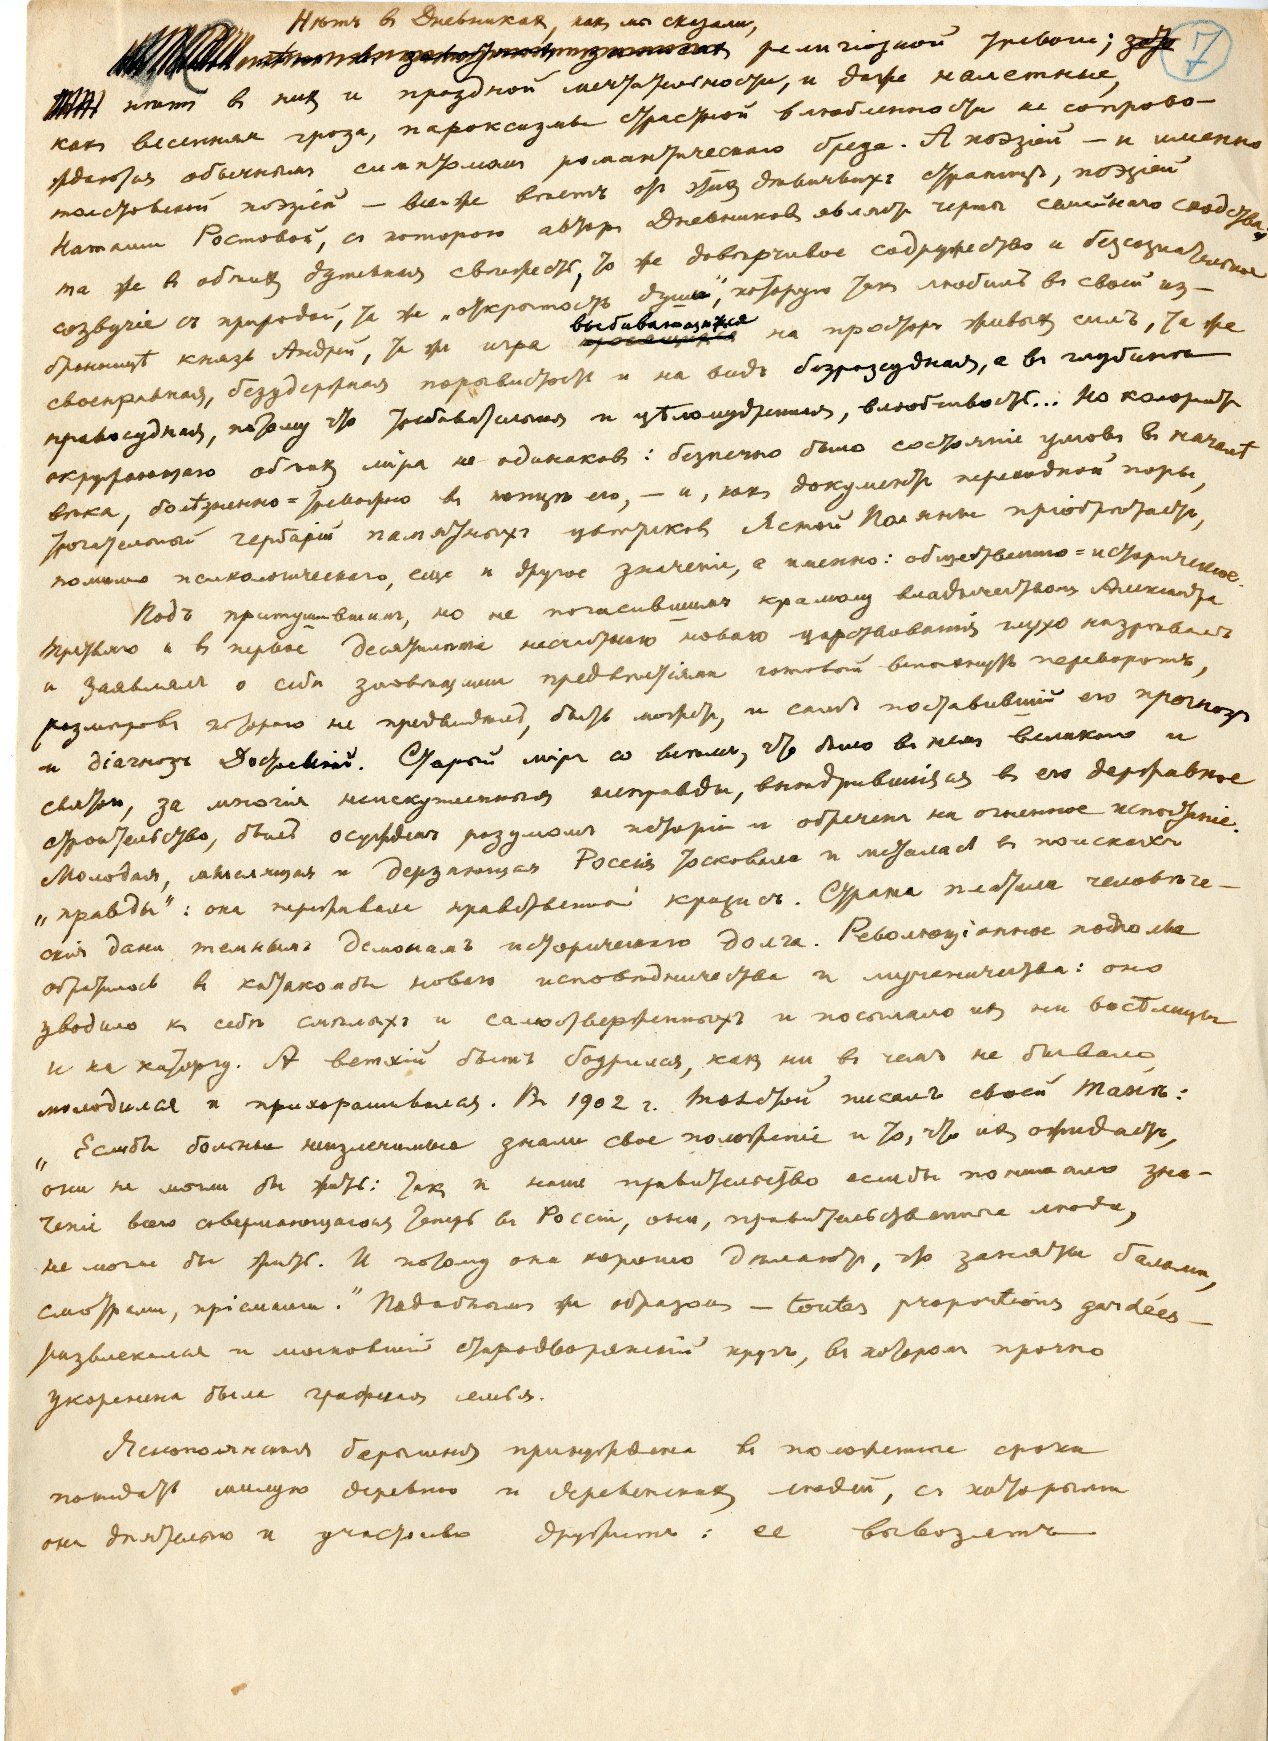 Нѣтъ въ Дневникахъ, какъ мы сказали,
религіозной тревоги; 7
нѣтъ въ нихъ и праздной мечтательности, и даже налетные,
какъ весенняя гроза, пароксизмы страстной влюбленности не сопрово-
ждаются обычными симптомами романтическаго бреда. А поэзіей — и именно
толстовской поэзіей — все же вѣетъ отъ этихъ дѣвичьихъ страницъ, поэзіей
Наташи Ростовой, съ которою авторъ Дневниковъ являетъ черты семейнаго сходства:
та же въ обѣихъ душевная свѣжесть, то же довѣрчивое содружество и безсознательное
созвучіе съ природой, та же „открытость души“, которую такъ любилъ въ своей из-
бранницѣ князь Андрей, та же игра выбивающихся на просторъ живыхъ силъ, та же
своенравная, безудержная порывистость и на видъ безразсудная, а въ глубинѣ
правосудная, потому что требовательная и цѣломудренная, влюбчивость... Но колоритъ
окружающаго обѣихъ міра не одинаковъ: безпечно было состояніе умовъ въ началѣ
вѣка, болѣзненно-тревожно въ концѣ его, — и, какъ документъ переходной поры,
трогательный гербарій памятныхъ цвѣтиковъ Ясной Поляны пріобрѣтаетъ,
помимо психологическаго, еще и другое значеніе, а именно: общественно-историческое.
Подъ притушившимъ, но не погасившимъ крамолу владычествомъ Александра
Третьяго и въ первое десятилѣтіе несчастнаго новаго царствованія глухо назрѣвалъ
и заявлялъ о себѣ зловѣщими предвѣстіями готовый вспыхнуть переворотъ,
размѣровъ котораго не предвидѣлъ, быть можетъ, и самъ поставившій его прогнозъ
и діагнозъ Достоевскій. Старый міръ со всѣмъ, что было въ немъ великаго и
святого, за многія неискупленныя неправды, внѣдрившіяся въ его державное
строительство, былъ осужденъ разумомъ исторіи и обреченъ на огненное испытаніе.
Молодая, мыслящая и дерзающая Россія тосковала и металась въ поискахъ
„правды“: она переживала нравственный кризисъ. Страна платила человѣче-
скія дани темнымъ демонамъ историческаго долга. Революціонное подполье
обратилось въ катакомбы новаго исповѣдничества и мученичества: оно
уводило къ себѣ смѣлыхъ и самоотверженныхъ и посылало ихъ на висѣлицы
и на каторгу. А ветхій бытъ бодрился, какъ ни въ чемъ не бывало,
молодился и прихорашивался. Въ 1902 г. Толстой писалъ своей Танѣ:
„Если бы больные неизлечимые знали свое положеніе и то, что ихъ ожидаетъ,
они не могли бы жить: такъ и наше правительство если бы понимало зна-
ченіе всего совершающагося теперь въ Россіи, они, правительственные люди,
не могли бы жить. И потому они хорошо дѣлаютъ, что заняты балами,
смотрами, пріемами.“ Подобнымъ же образомъ — toutes proportions gardées —
развлекался и московскій стародворянскій кругъ, въ которомъ прочно
укоренена была графская семья.
Яснополянская барышня принуждена въ положенные сроки
покидать милую деревню и деревенскихъ людей, съ которыми
она дѣятельно и участливо дружитъ: ее вывозятъ